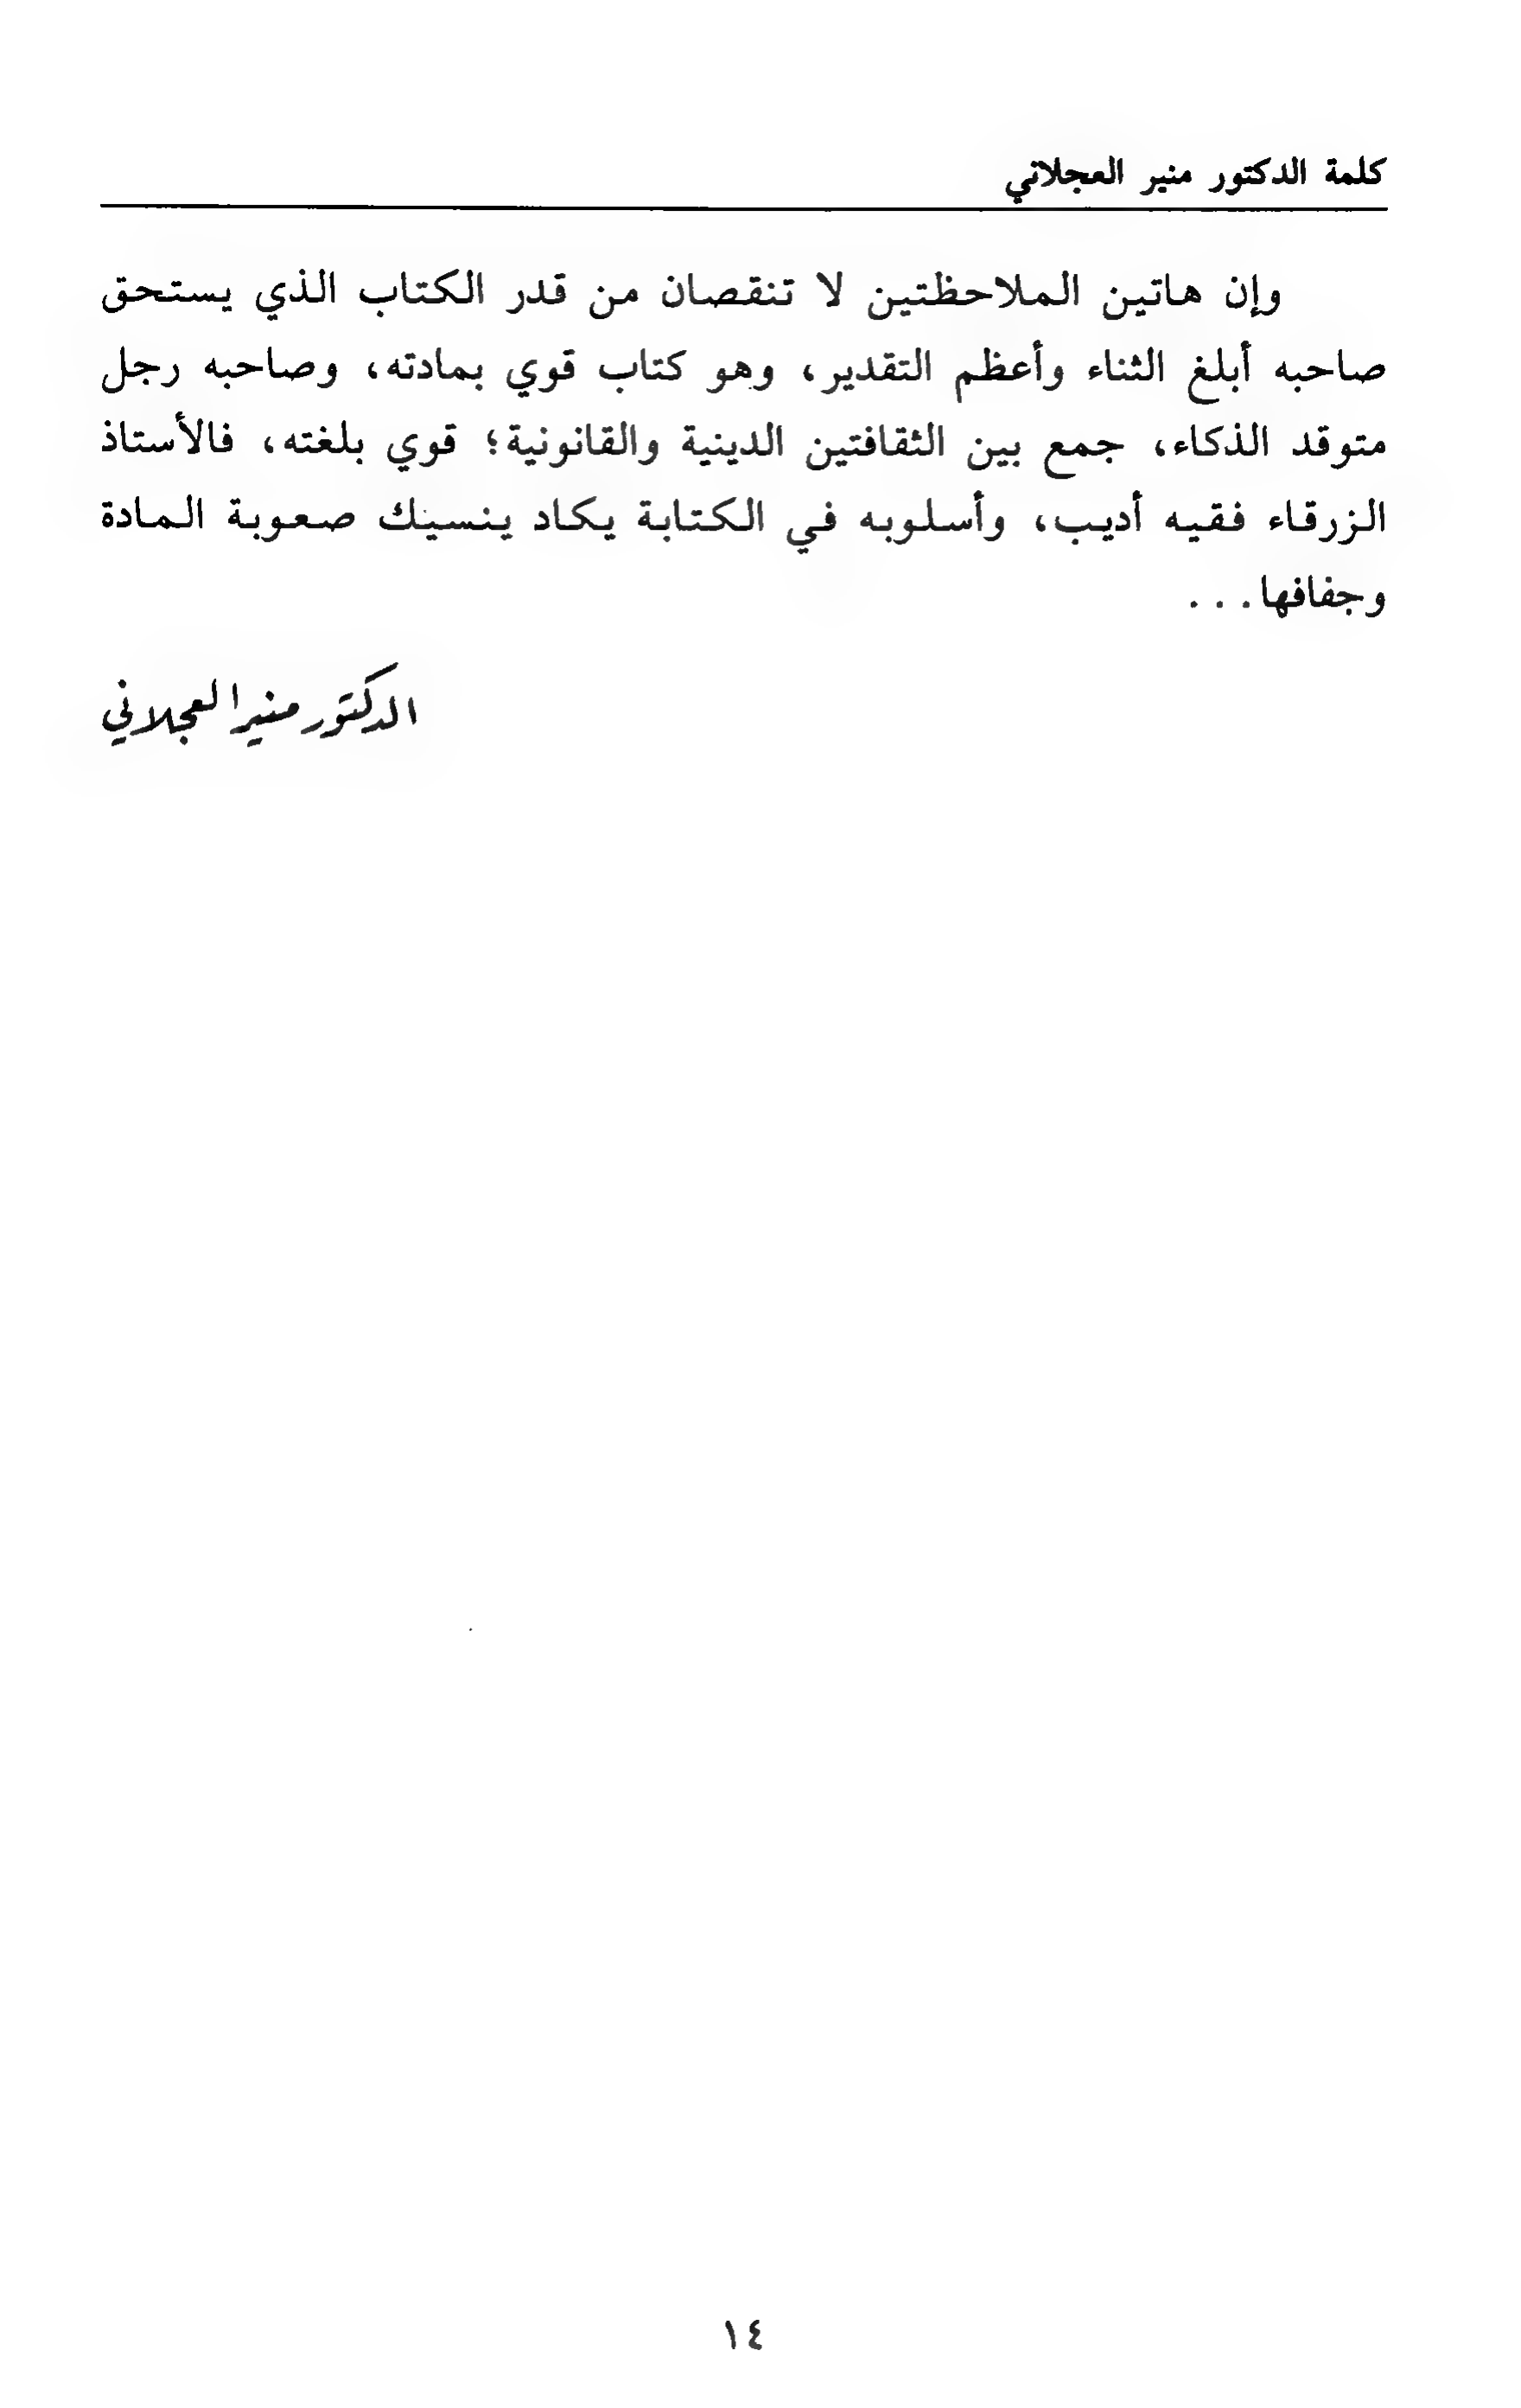 كلمة الدكتور منير العجلاني
وإن هاتين الملاحظتين لا تنقصان من قدر الكتاب الذي يستحق
صاحبه أبلغ الثناء وأعظم التقدير، وهو كتاب قوي بمادته، وصاحبه رجل
متوقد الذكاء، جمع بين الثقافتين الدينية والقانونية؛ قوي بلغته، فالأستاذ
الزرقاء فقيه أديب، وأسلوبه في الكتابة يكاد ينسيك صعوبة المادة
وجفافها...
الدكتور منير العجلاني
١٤